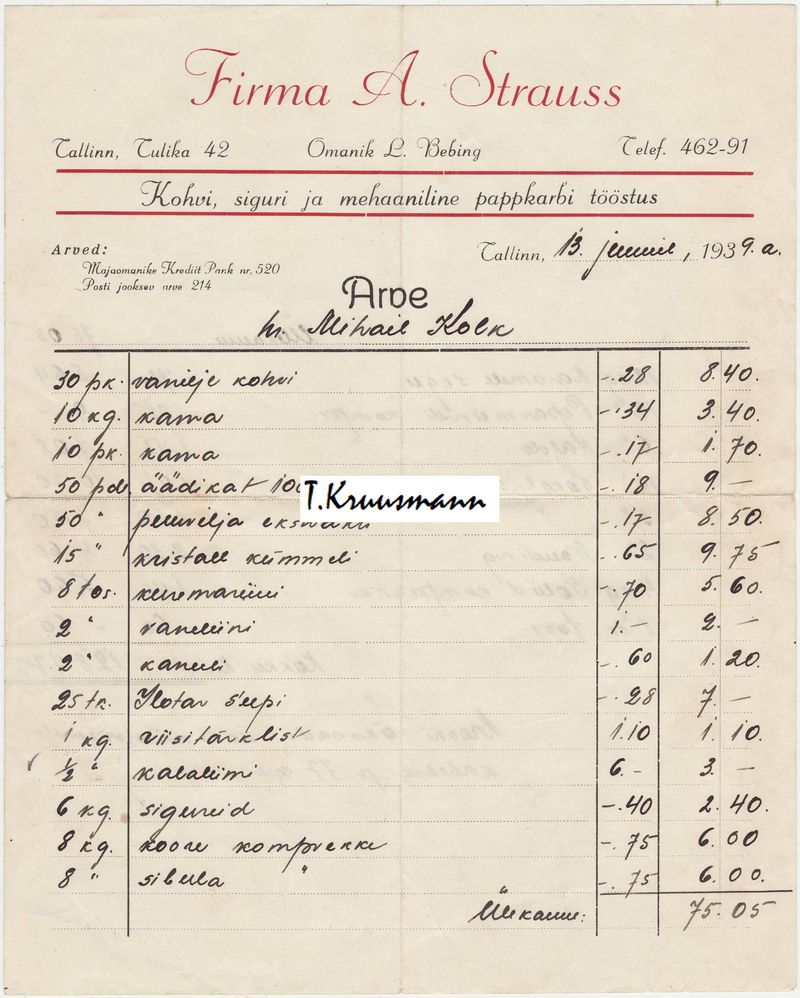 Firma A. Strauss
Tallinn, Tulika 42 Omanik L. Bebing Telef. 462-91
Kohvi, siguri ja mehaaniline pappkarbi tööstus
Arved: Tallinn, 13. juunil, 1939. a.
Majaomanike Krediit Pank nr. 520
Posti jooksev arve 214
Arve
hr. Mihail Kolk
30 pk. vanilje kohvi -.28 8.40.
10 kg. kama -.34 3.40.
10 pk. kama -.17 1.70.
50 pdl. äädikat -.18 9.-
T.Kruusmann
50 " -.17 8.50.
15 " kristall kümmeli -.65 9.75
8 tos. -.70 5.60.
2 " vanilliini 1.- 2.-
2 " kaneeli -.60 1.20.
25 tk. Ilotar seepi -.28 7.-
1 kg. riisitärklist 1.10 1.10.
1/2 " kalaliimi 6.- 3.-
6 kg. sigureid -.40 2.40.
8 kg. koore kompvekke -.75 6.00
8 " sibula " -.75 6.00.
Ülekanne: 75.05